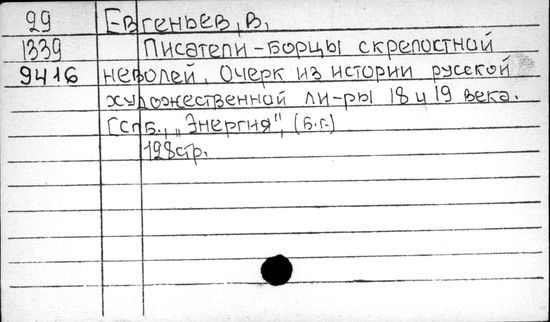 29 Евгеньев, В.
1339 Писатели-борцы скрепостной
9416 неволей. Очерк из истории русской
художественной ли-ры 18 и 19 века.
Спб., „Энергия", (б.г.)
128стр.